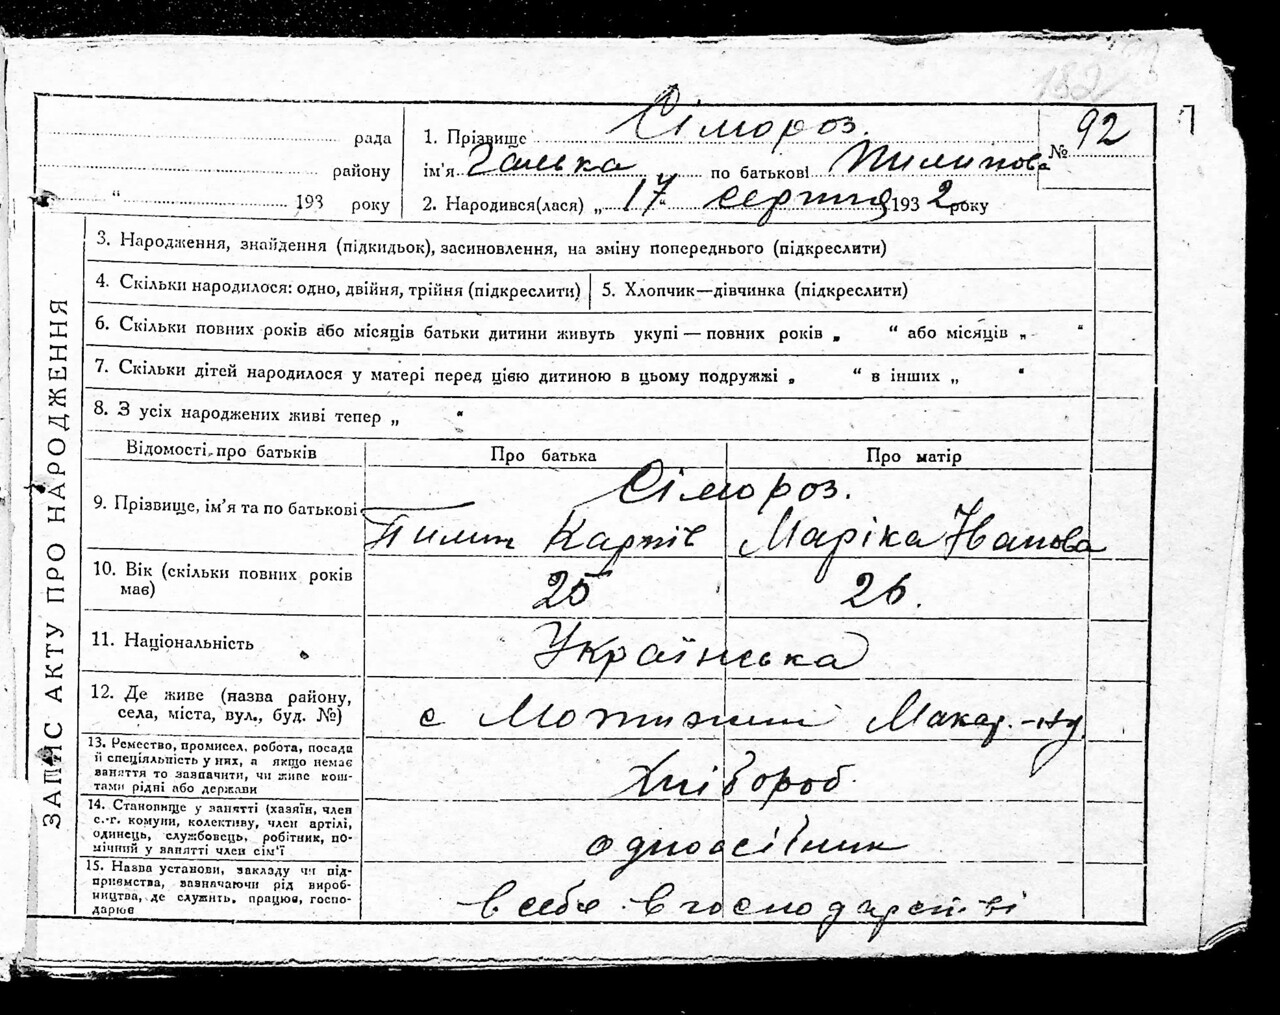 182
рада
району
“ 193 року
1. Прізвище Сімороз.
ім'я Галька по батькові Пилипова
2. Народився(лася) „ 17 “ серпня 1932 року
№ 92
ЗАПИС АКТУ ПРО НАРОДЖЕННЯ
3. Народження, знайдення (підкидьок), засиновлення, на зміну попереднього (підкреслити)
4. Скільки народилося: одно, двійня, трійня (підкреслити)
5. Хлопчик—дівчинка (підкреслити)
6. Скільки повних років або місяців батьки дитини живуть укупі — повних років „ “ або місяців „ “
7. Скільки дітей народилося у матері перед цією дитиною в цьому подружжі „ “ в інших „ “
8. З усіх народжених живі тепер „ “
Відомості про батьків
Про батька
Про матір
9. Прізвище, ім'я та по батькові
Сімороз.
Пилип Карпів
Маріка Іванова
10. Вік (скільки повних років
має)
25
26.
11. Національність
Українська
12. Де живе (назва району,
села, міста, вул., буд. №)
с Мотижин Макар.
13. Ремество, промисел, робота, посада
й спеціяльність у них, а якщо немає
заняття то зазначити, чи живе кош-
тами рідні або держави
Хлібороб
14. Становище у занятті (хазяїн, член
с.-г. комуни, колективу, член артілі,
одинець, службовець, робітник, по-
мічний у занятті член сім'ї
одноосібник
15. Назва установи, закладу чи під-
приємства, зазначаючи рід вироб-
ництва, де служить, працює, госпо-
дарює
в себе в господарстві